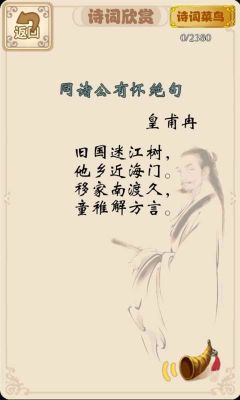 返回
诗词欣赏
诗词菜鸟
0/2380
同诸公有怀绝句
皇甫冉
旧国迷江树，
他乡近海门。
移家南渡久，
童稚解方言。